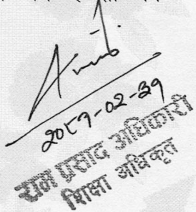 २०८१-०२-२१
राम प्रसाद अधिकारी
शिक्षा अधिकृत